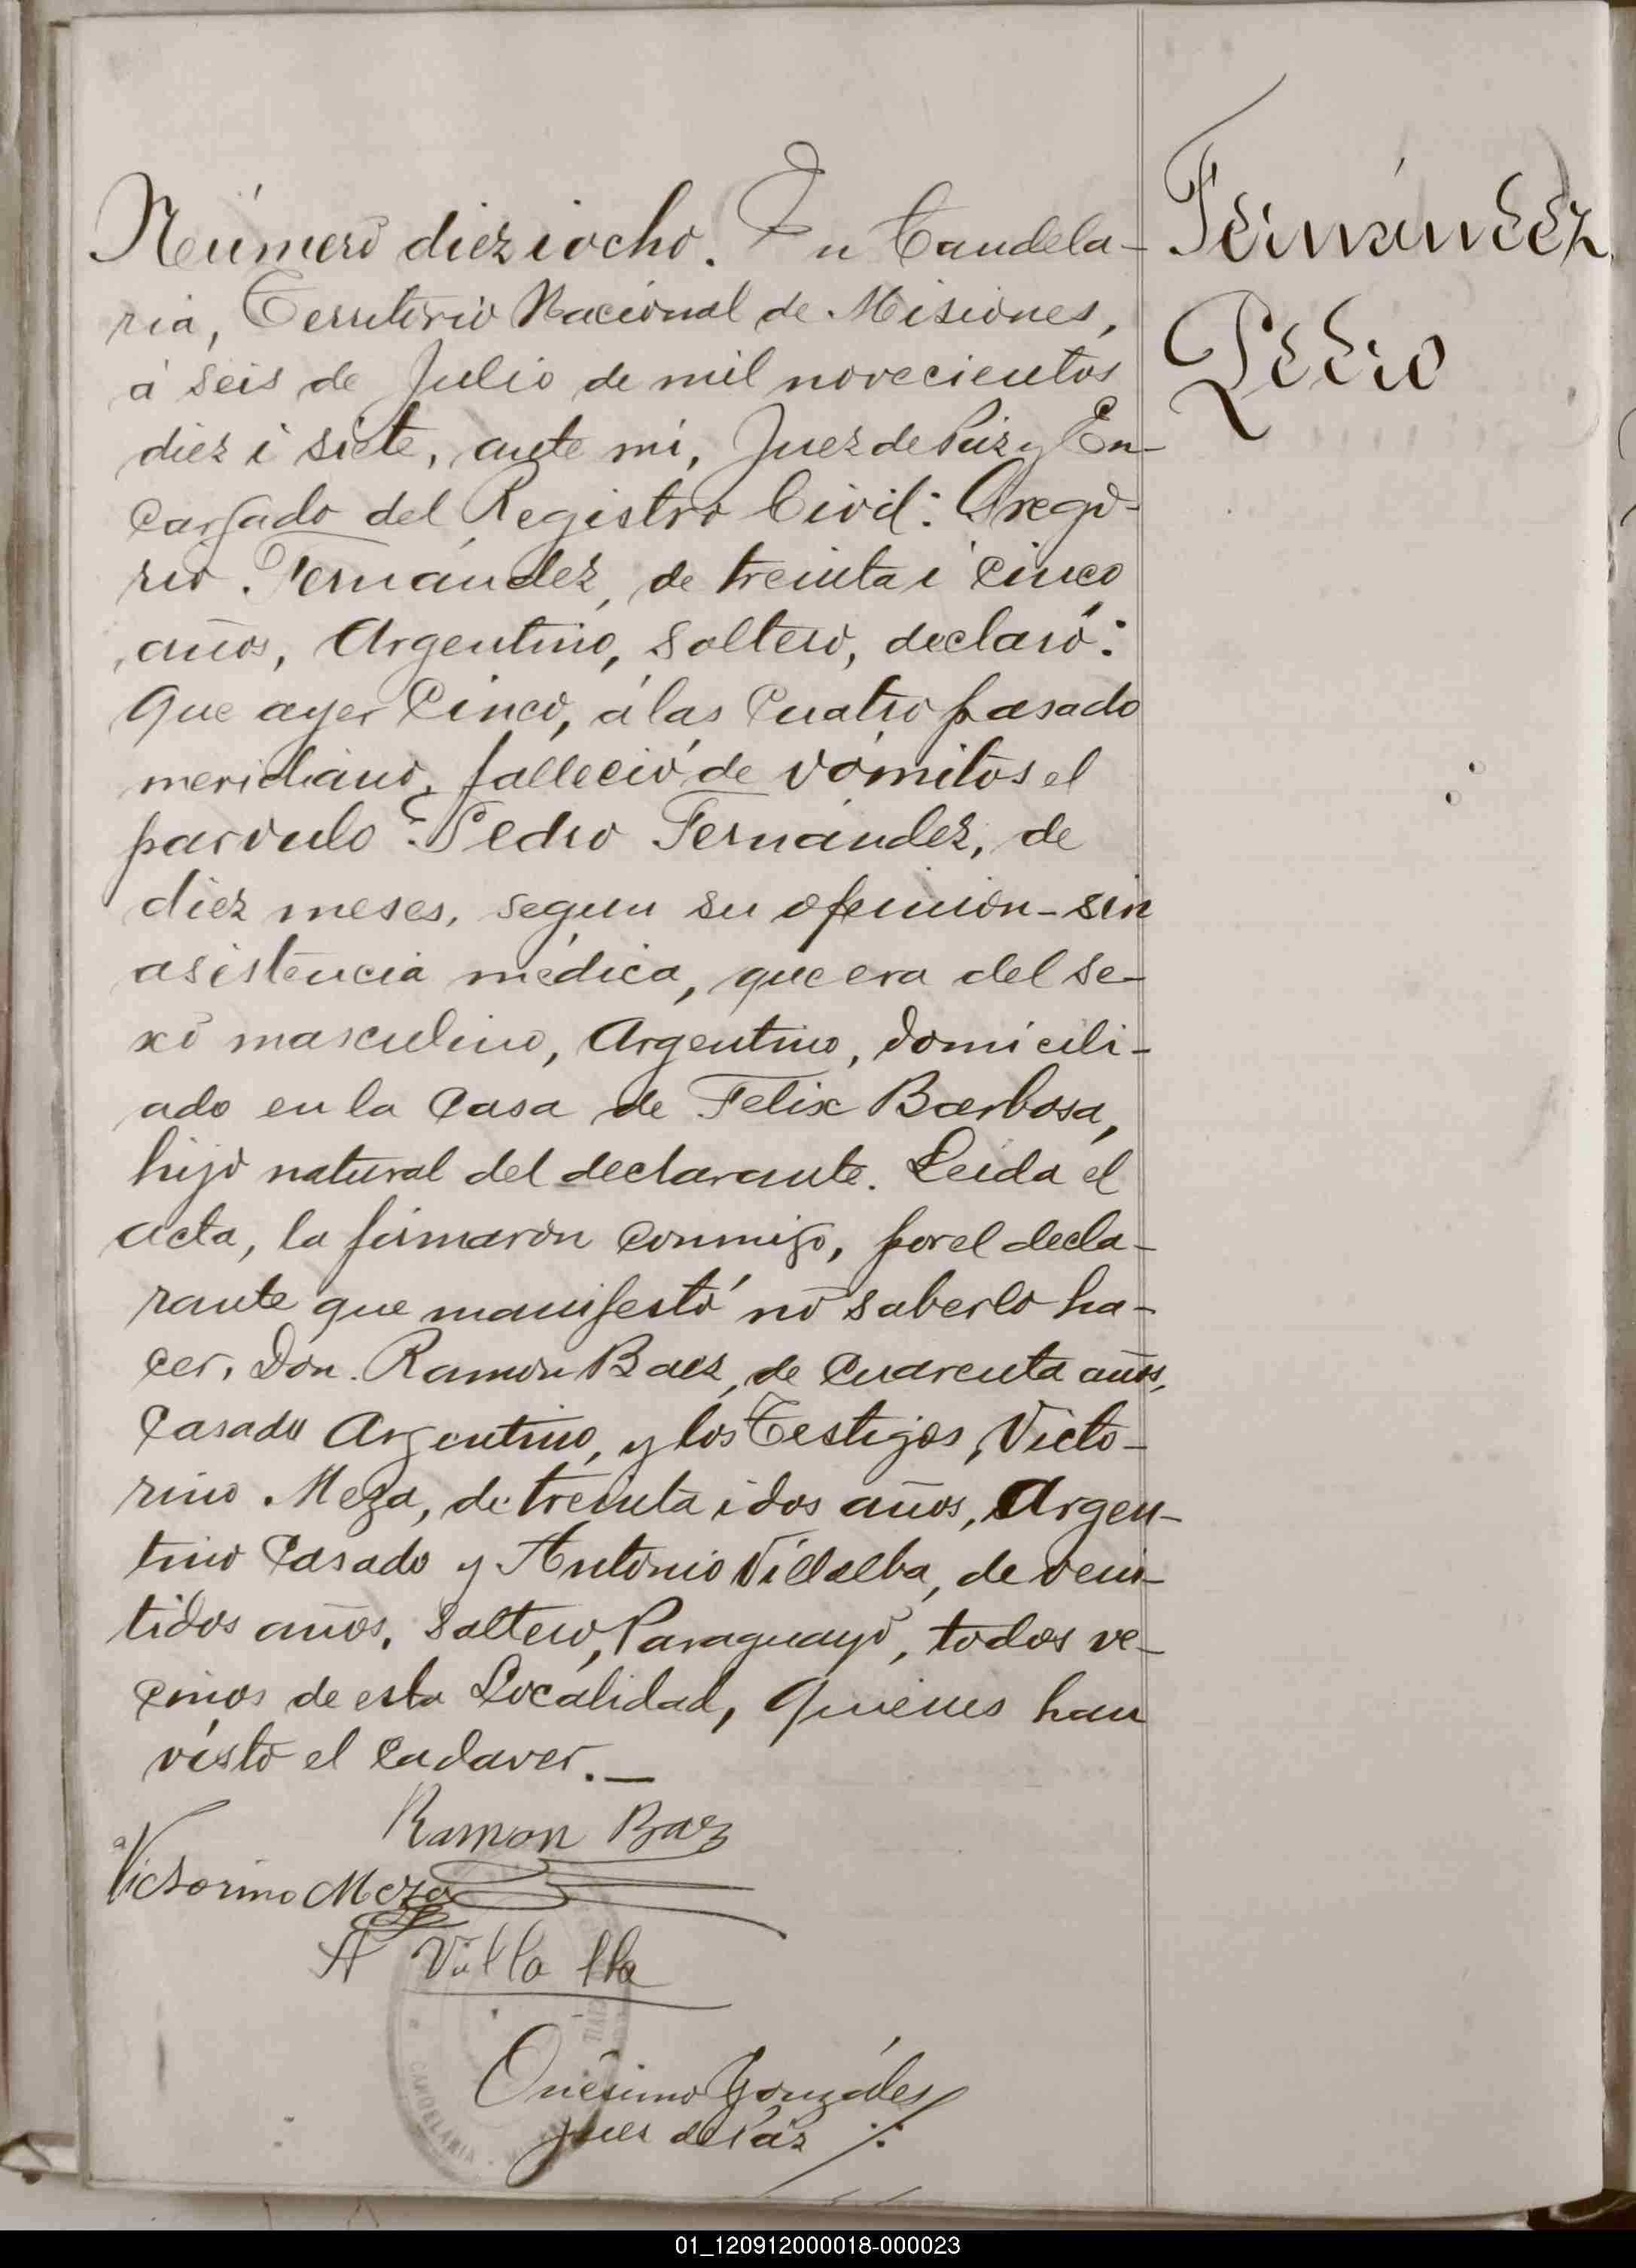 Número diez i ocho. En Candela-
ria, Territorio Nacional de Misiones,
á seis de Julio de mil novecientos
diez i siete, ante mi, Juez de Paz y En-
cargado del Registro Civil: Grego-
rio Fernández, de treinta i cinco
años, Argentino, soltero, declaró:
Que ayer Cinco, á las Cuatro pasado
meridiano, falleció de vómitos el
parvulo Pedro Fernández, de
diez meses, segun su opinión - sin
asistencia médica, que era del se-
xo masculino, Argentino, domicili-
ado en la Casa de Felix Barbosa,
hijo natural del declarante. Leida el
acta, la firmaron conmigo, por el decla-
rante que manifestó no saberlo ha-
cer, Don Ramon Baez, de Cuarenta años,
Casado Argentino, y los Testigos, Victo-
rino Meza, de treinta i dos años, Argen-
tino Casado y Antonio Villalba, de vein-
tidos años, Soltero, Paraguayo, todos ve-
cinos de esta Localidad, Quienes han
visto el Cadaver. —
Fernández
Pedro
Ramon Baez
Victorino Meza
A Villalba
Onésimo González
Juez de Paz
CANDELARIA
01_120912000018-000023